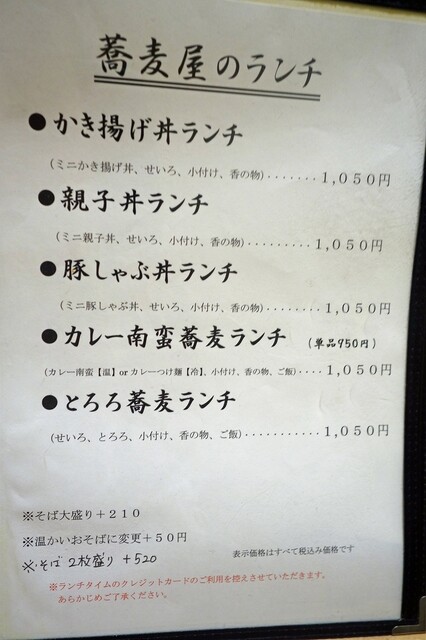 蕎麦屋のランチ
●かき揚げ丼ランチ
(ミニかき揚げ丼、せいろ、小付け、香の物)‥‥‥‥1,050円
●親子丼ランチ
(ミニ親子丼、せいろ、小付け、香の物)‥‥‥‥‥1,050円
●豚しゃぶ丼ランチ
(ミニ豚しゃぶ丼、せいろ、小付け、香の物)‥‥‥‥1,050円
●カレー南蛮蕎麦ランチ (単品950円)
(カレー南蛮【温】orカレーつけ麺【冷】、小付け、香の物、ご飯)‥‥1,050円
●とろろ蕎麦ランチ
(せいろ、とろろ、小付け、香の物、ご飯)‥‥‥‥‥1,050円
※そば大盛り+210
※温かいおそばに変更+50円
※そば2枚盛り +520
表示価格はすべて税込み価格です
※ランチタイムのクレジットカードのご利用を控えさせていただきます。
あらかじめご了承ください。